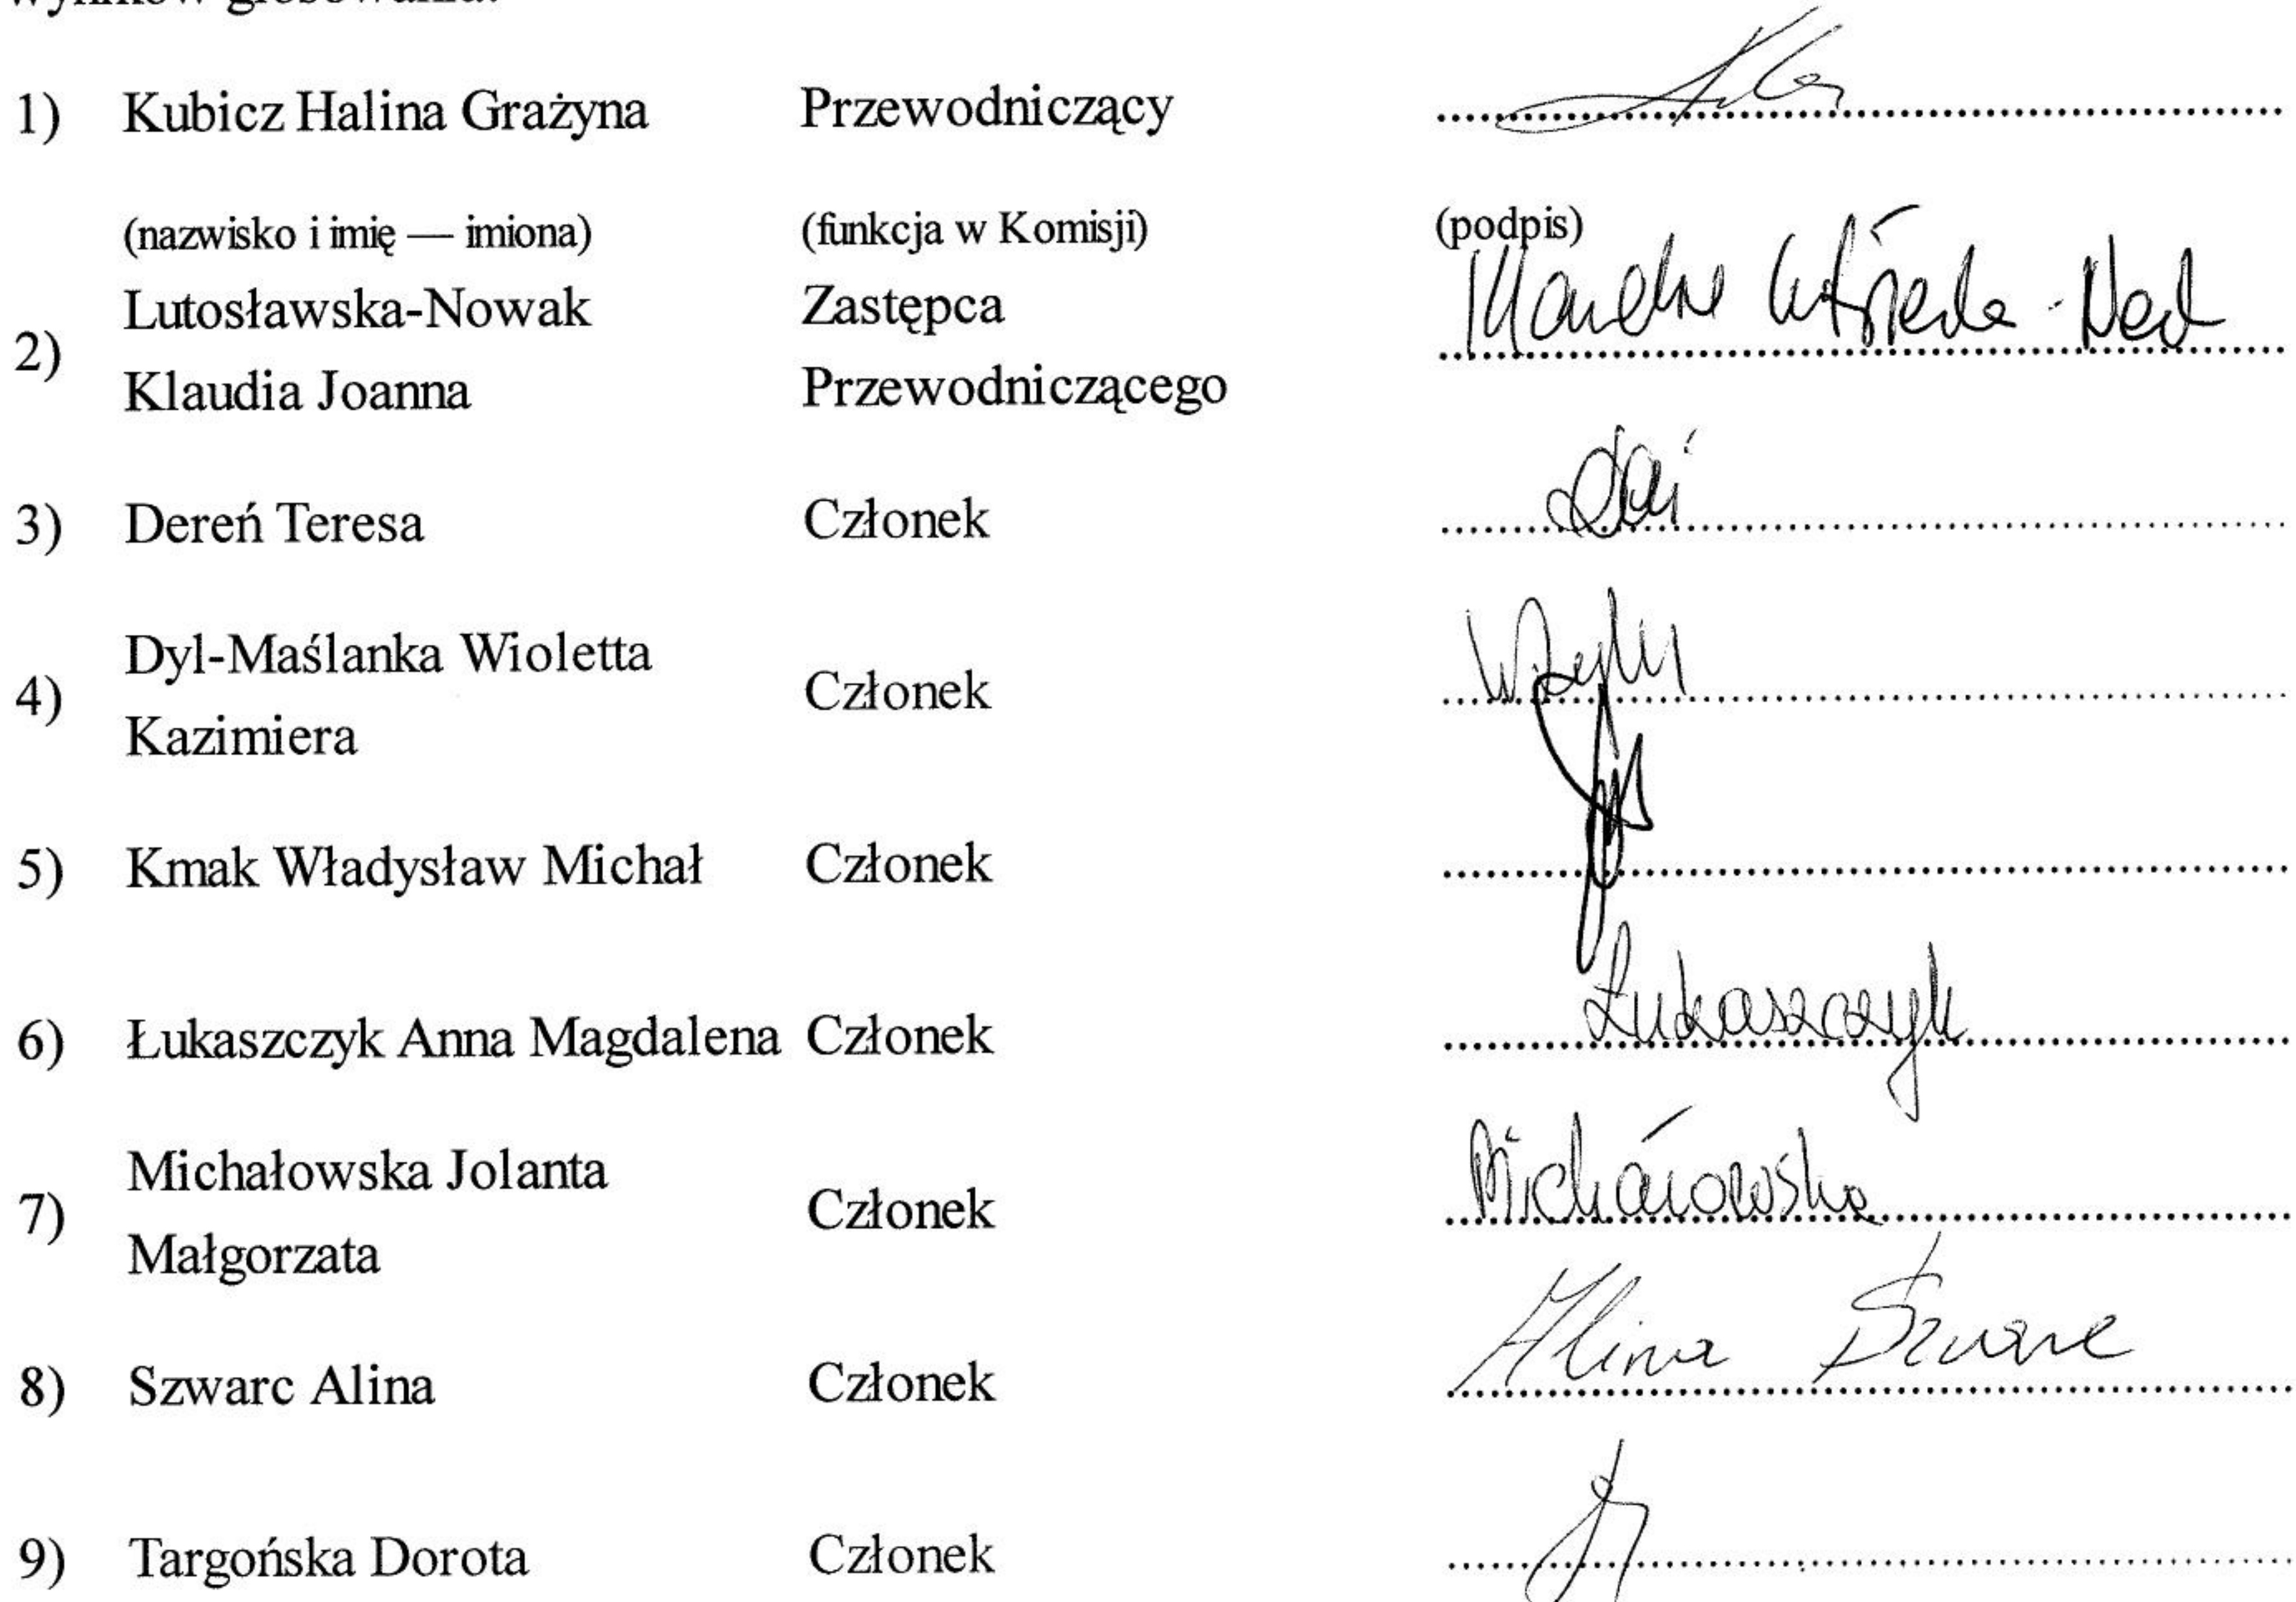 1) Kubicz Halina Grażyna Przewodniczący
(nazwisko i imię — imiona) (funkcja w Komisji) (podpis)
2) Lutosławska-Nowak Zastępca
Klaudia Joanna Przewodniczącego
3) Dereń Teresa Członek
4) Dyl-Maślanka Wioletta Członek
Kazimiera
5) Kmak Władysław Michał Członek
6) Łukaszczyk Anna Magdalena Członek Łukaszczyk
7) Michałowska Jolanta Członek Michałowska
Małgorzata
8) Szwarc Alina Członek Alina Szwarc
9) Targońska Dorota Członek